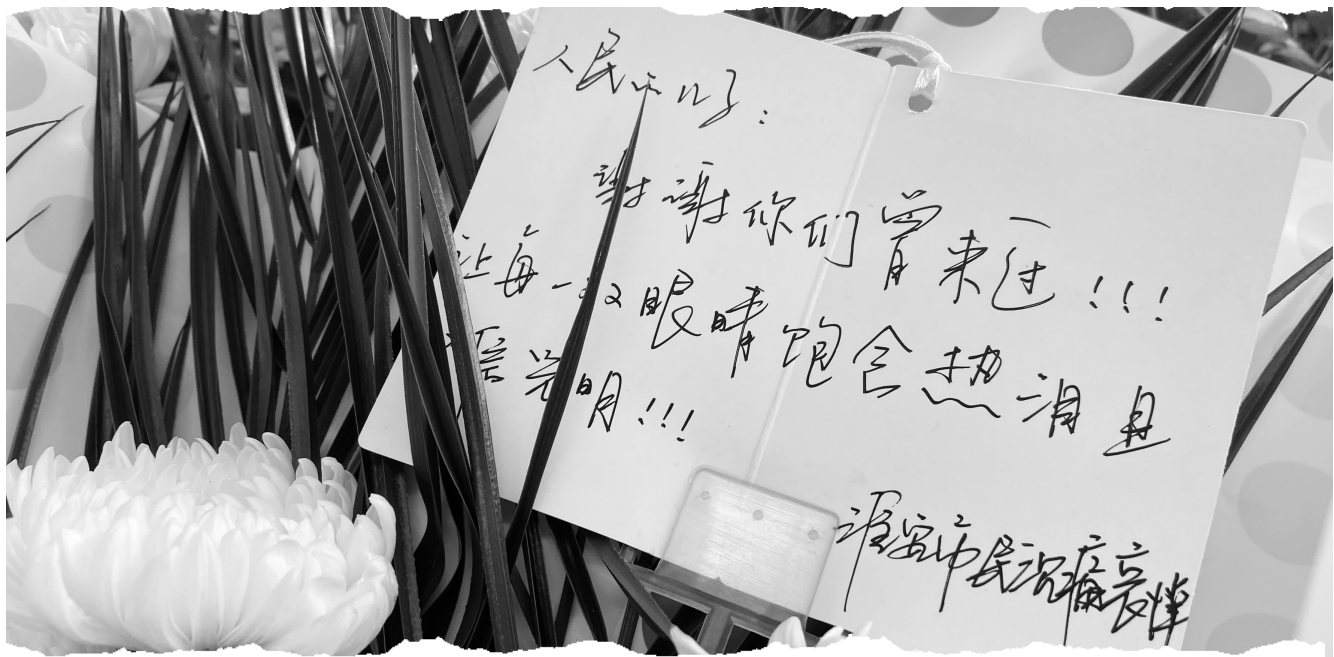 人民的儿子：
謝謝你们曾来过！！！
让每一双眼睛饱含热泪且
饱含光明！！！
淮安市民沉痛哀悼